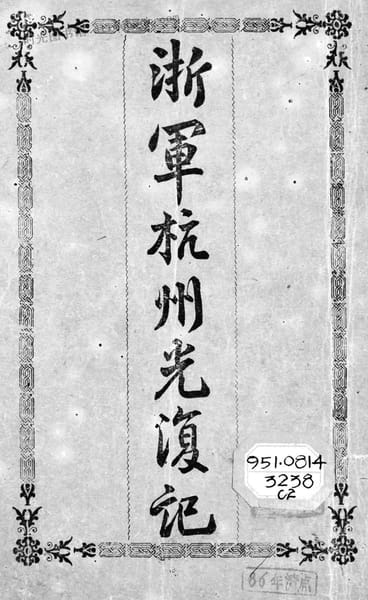 浙軍杭州光復記
951.0814
3238
C2